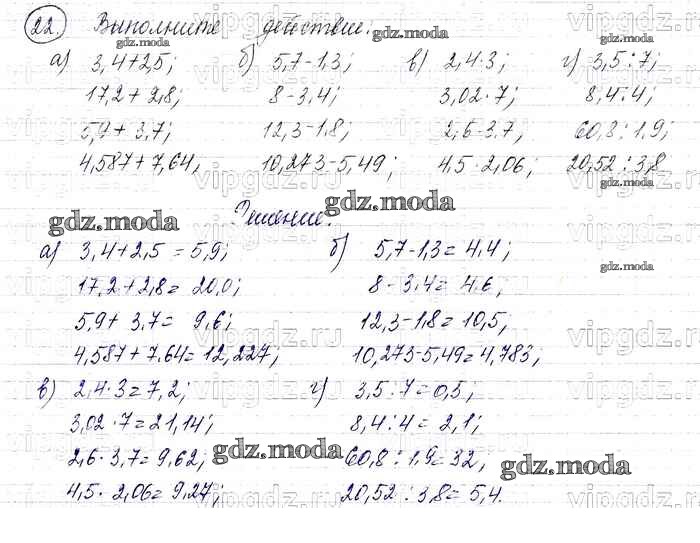 22. Выполните действие:
а) 3,4+2,5; б) 5,7-1,3; в) 2,4·3; г) 3,5:7;
17,2+2,8; 8-3,4; 3,02·7; 8,4:4;
5,9+3,7; 12,3-1,8; 2,6·3,7; 60,8:1,9;
4,587+7,64, 10,273-5,49; 4,5·2,06; 20,52:3,8
Решение.
а) 3,4+2,5=5,9; б) 5,7-1,3=4,4;
17,2+2,8=20,0; 8-3,4=4,6,
5,9+3,7=9,6; 12,3-1,8=10,5,
4,587+7,64=12,227; 10,273-5,49=4,783;
в) 2,4·3=7,2; г) 3,5:7=0,5;
3,02·7=21,14; 8,4:4=2,1;
2,6·3,7=9,62; 60,8:1,9=32,
4,5·2,06=9,27; 20,52:3,8=5,4.
gdz.moda
vipgdz.ru